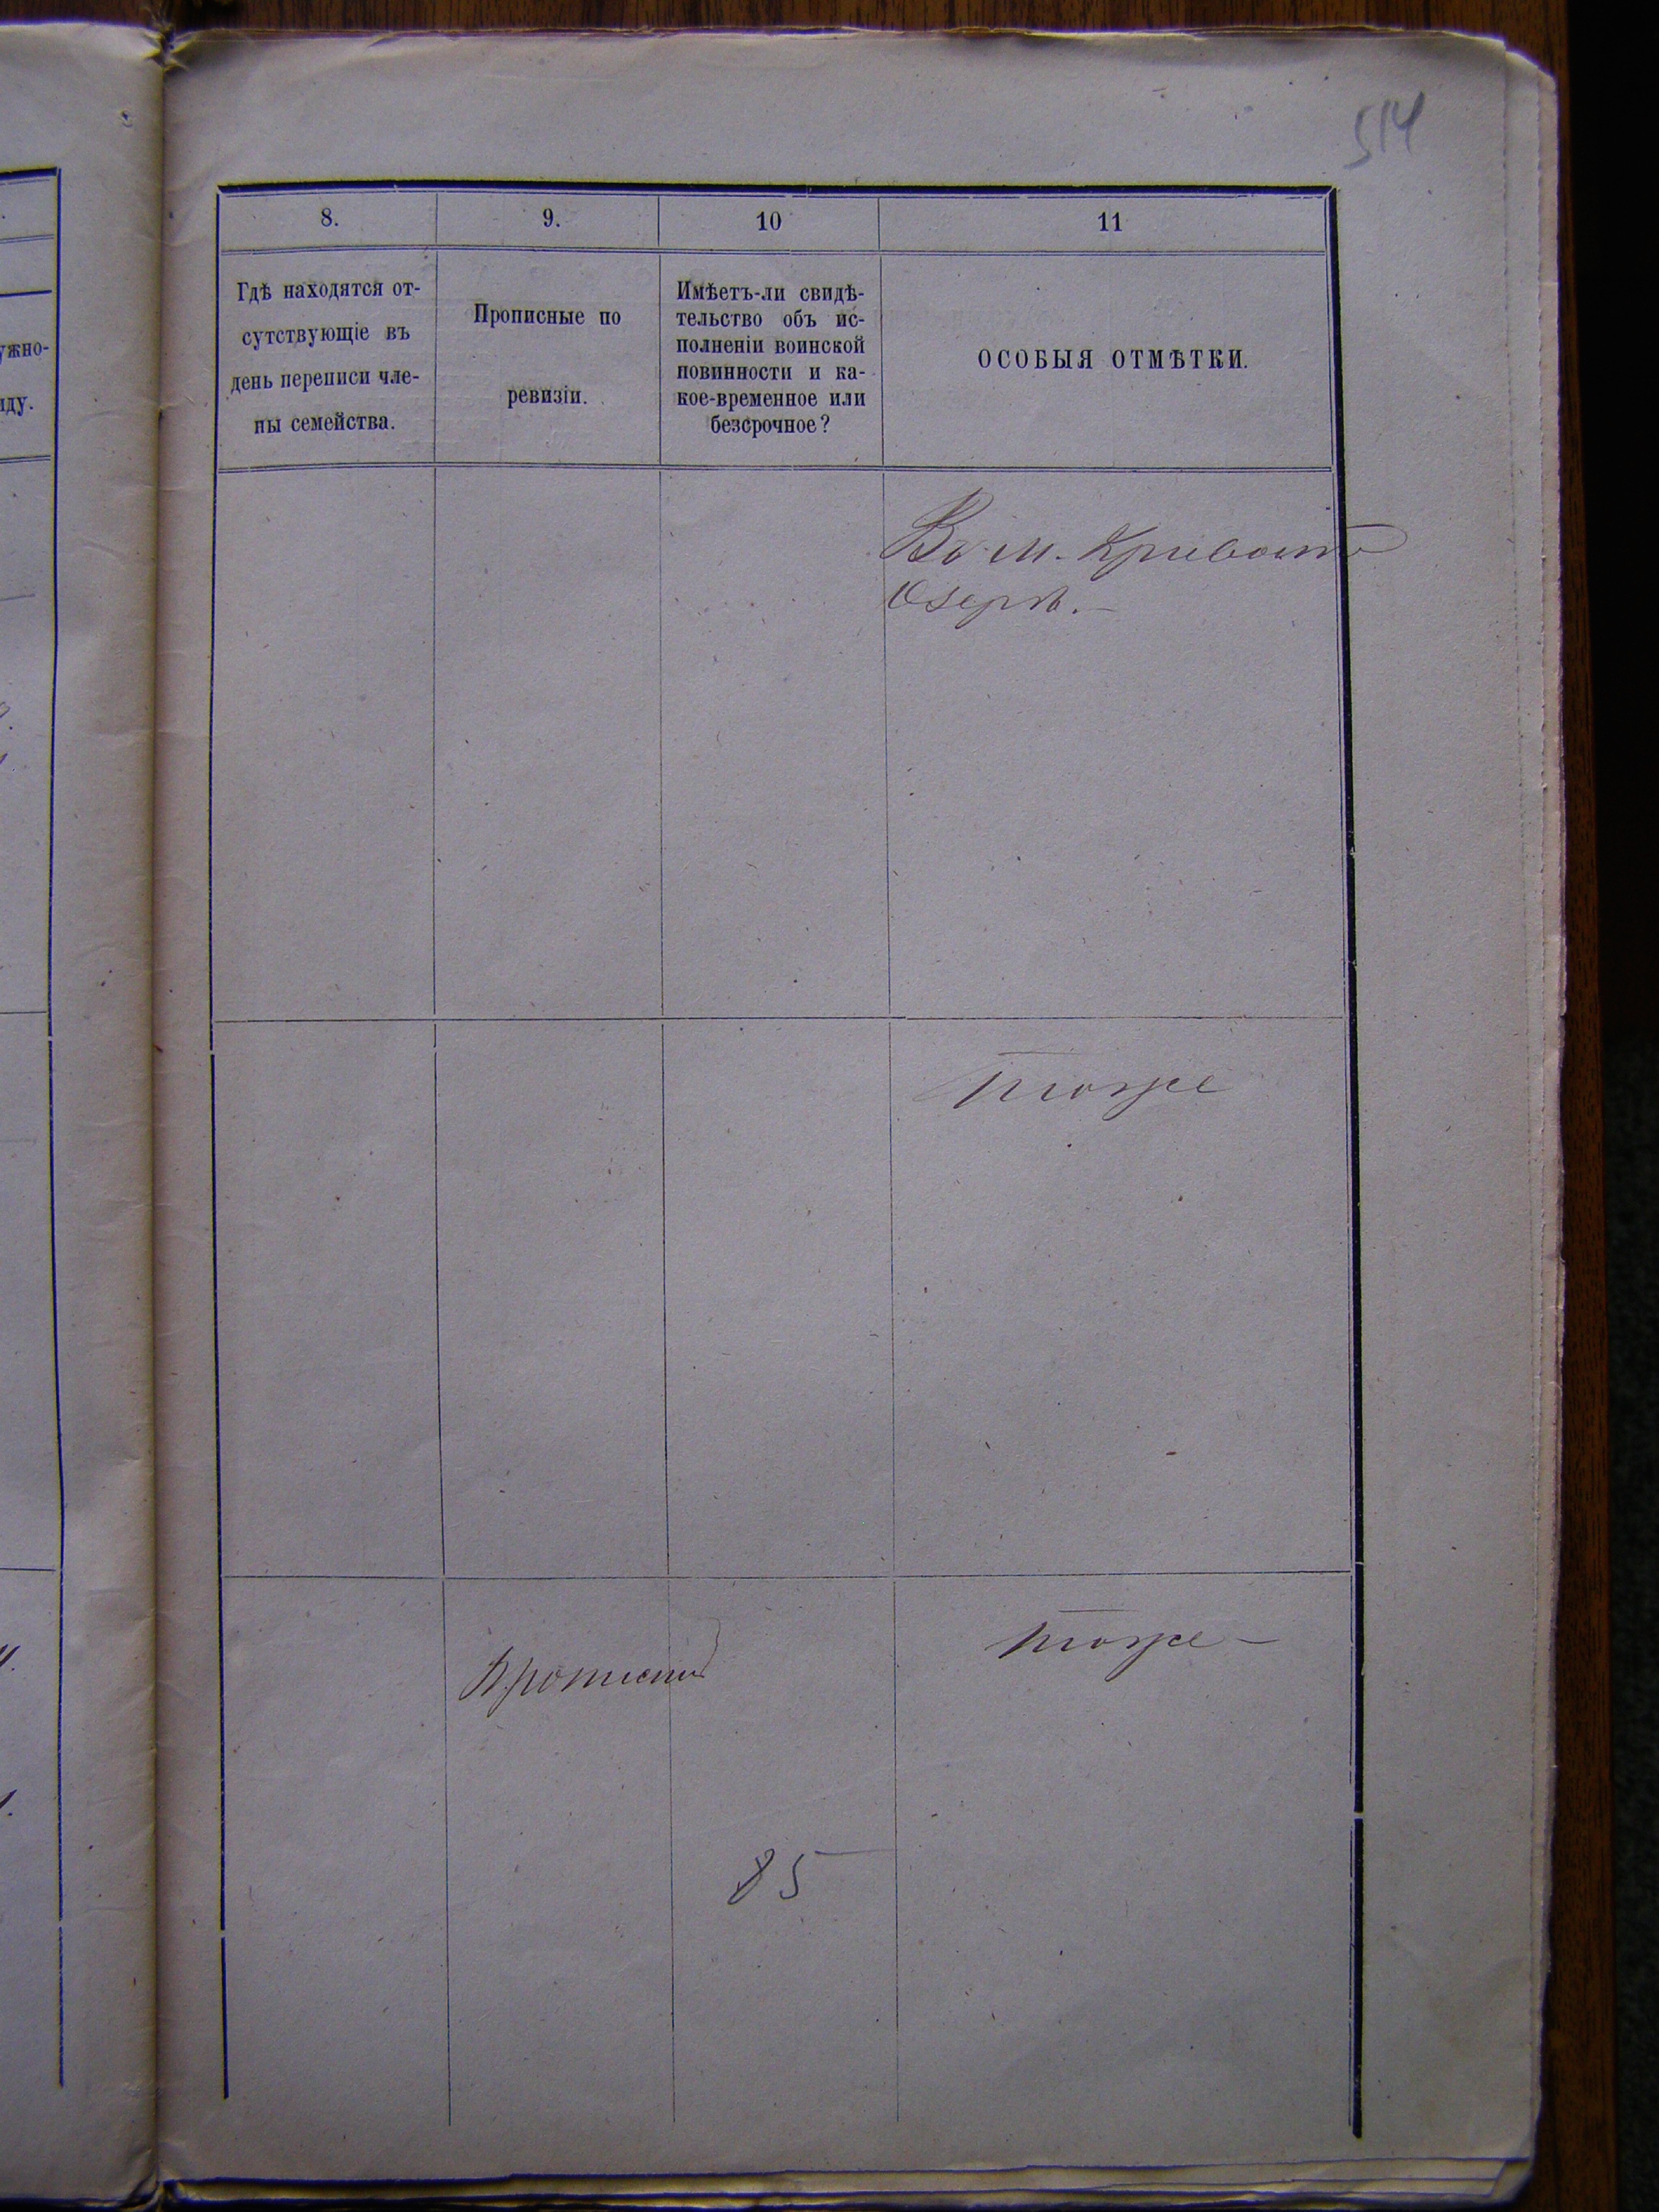 514
8.
9.
10
11
Гдѣ находятся от-
сутствующіе въ
день переписи чле-
ны семейства.
Прописные по
ревизіи.
Имѣетъ-ли свидѣ-
тельство объ ис-
полненіи воинской
повинности и ка-
кое-временное или
безсрочное?
ОСОБЫЯ ОТМѢТКИ.
ужно-
иду.
Въ м. Кривомъ
Озерѣ.-
тоже
тоже -
85